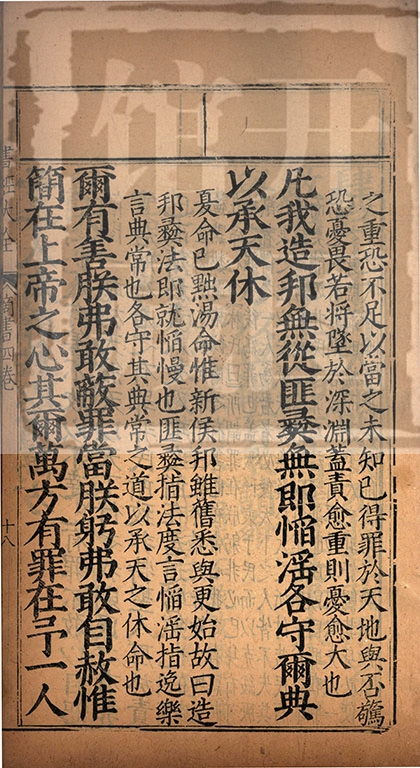 之重恐不足以當之未知已得罪於天地與否驚
恐憂畏若將墜於深淵蓋責愈重則憂愈大也
凡我造邦無從匪彝無卽慆滛各守爾典
以承天休
夏命已黜湯命惟新侯邦雖舊悉與更始故曰造
邦彝法卽就慆慢也匪彝指法度言慆滛指逸樂
言典常也各守其典常之道以承天之休命也
爾有善朕弗敢蔽罪當朕躬弗敢自赦惟
簡在上帝之心其爾萬方有罪在予一人
書經大全
商書四卷
十八